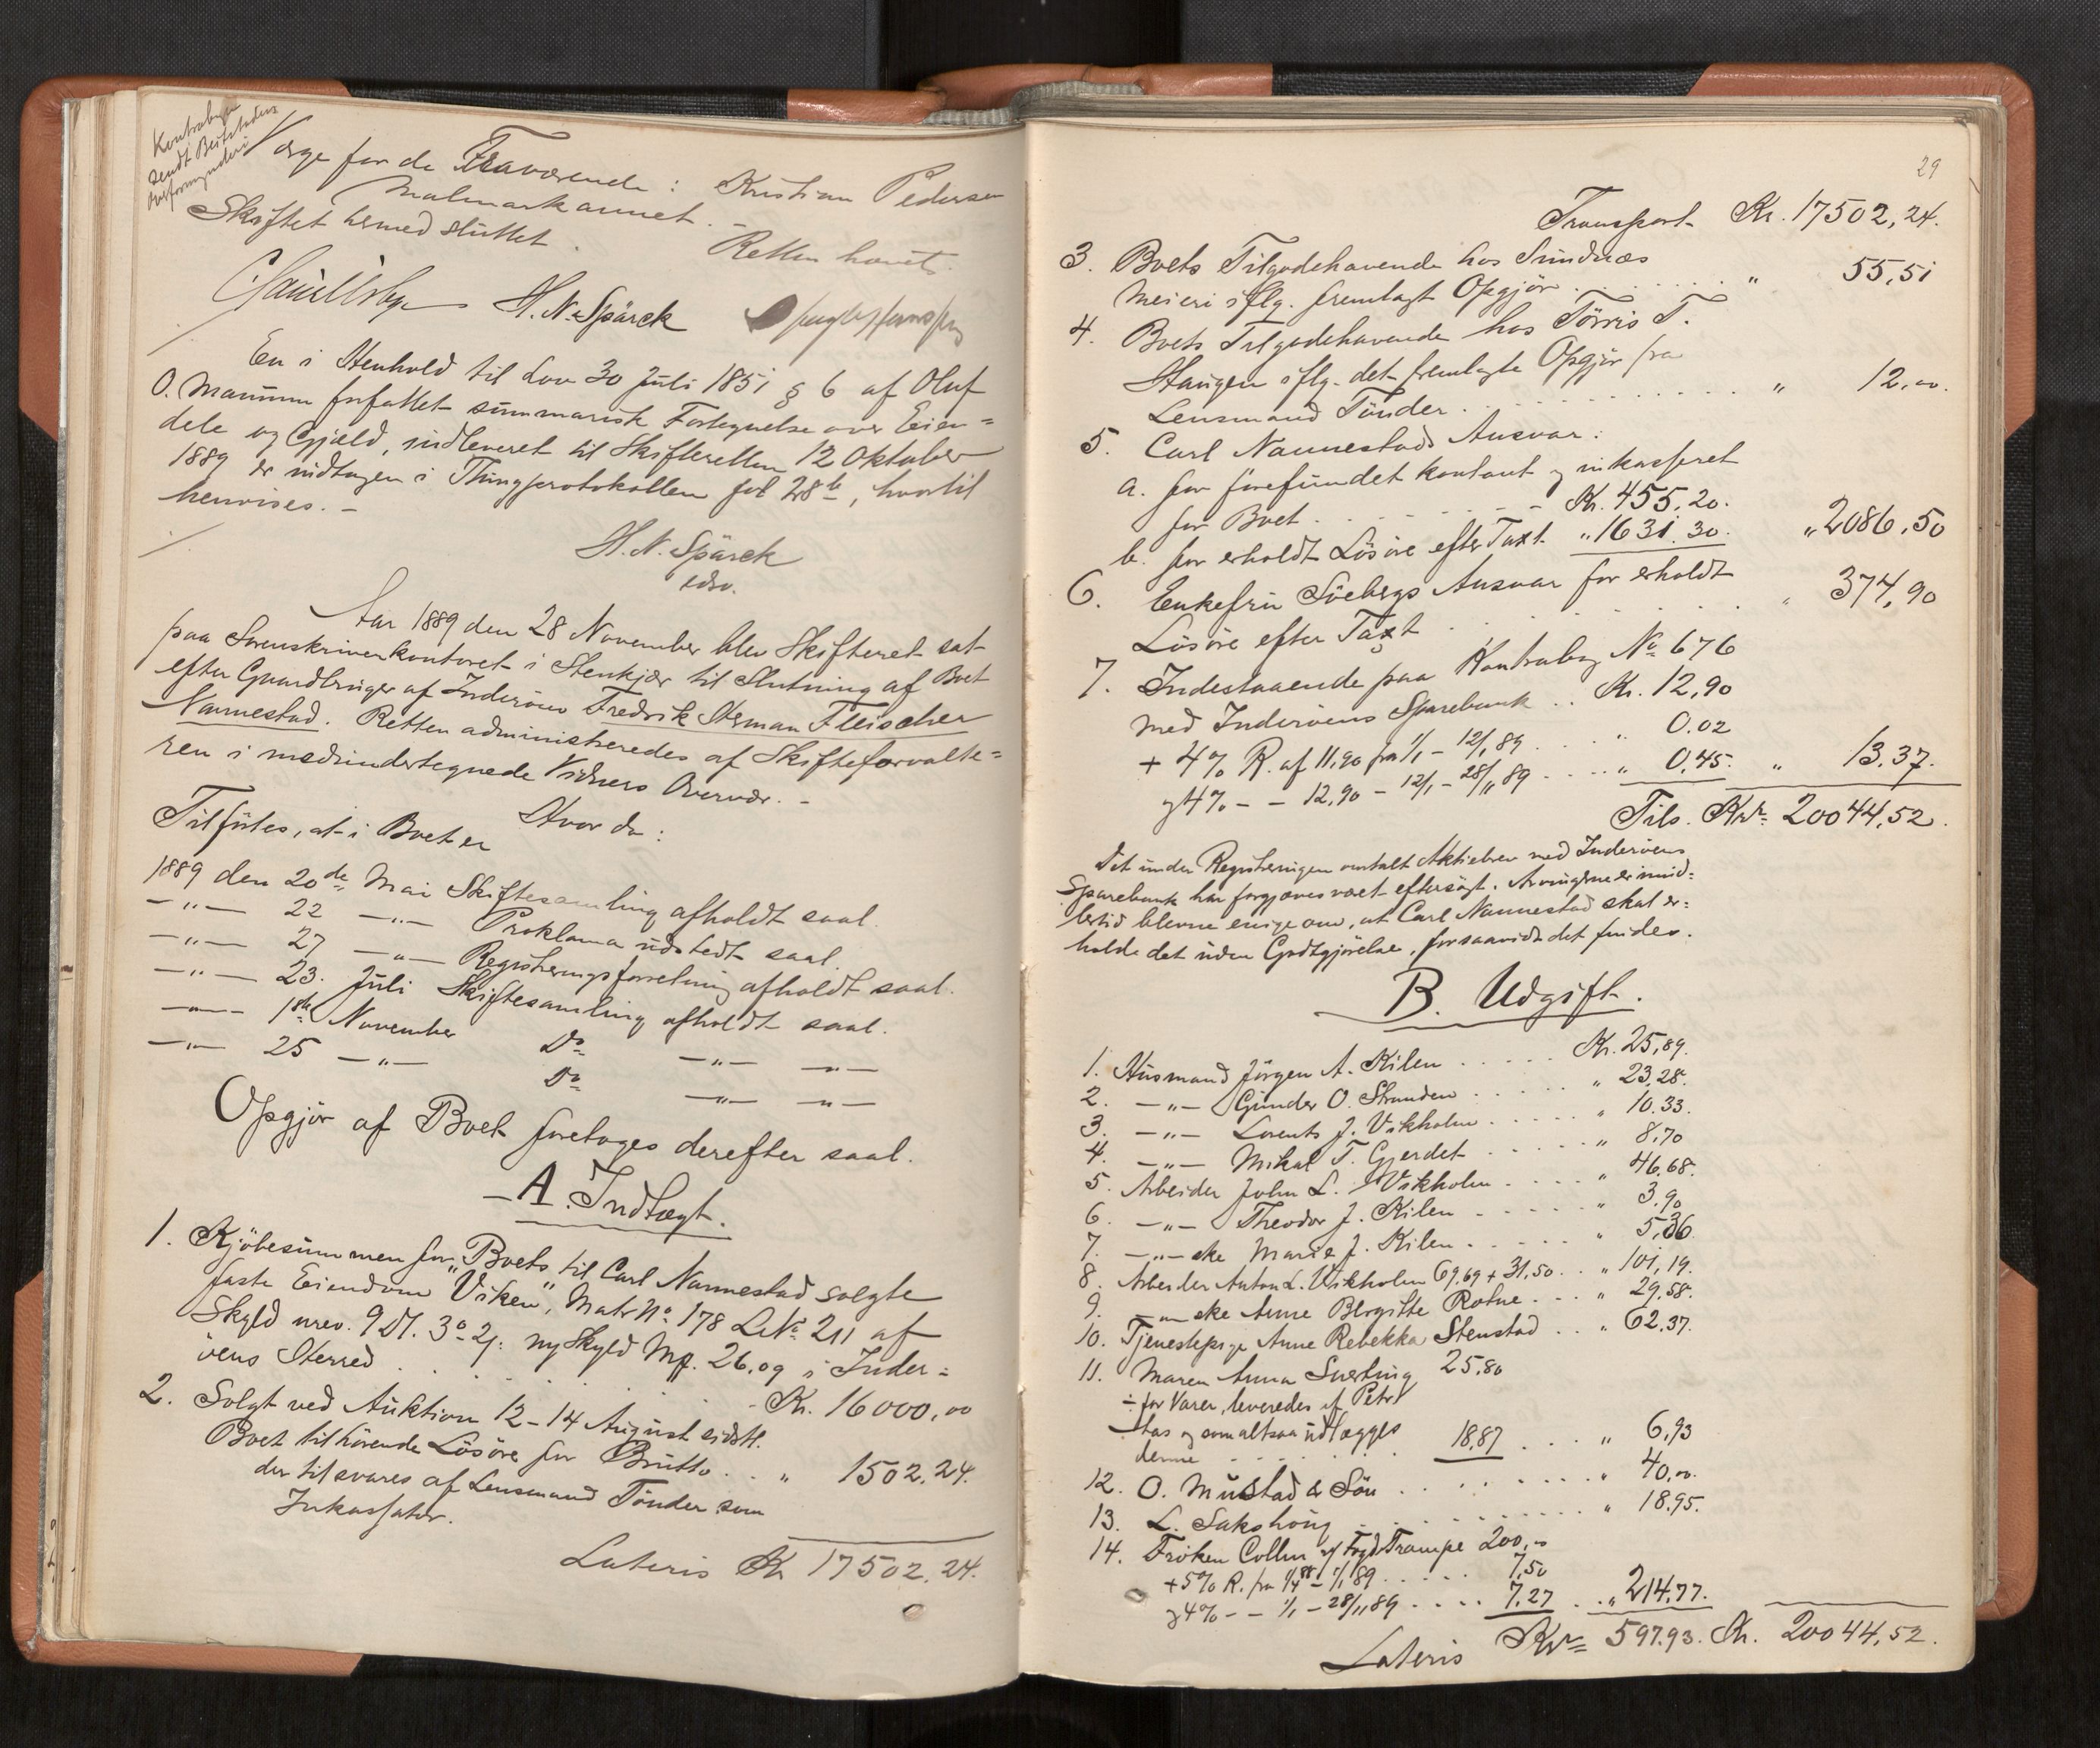 Kontrabogen
sendt Beitstadens
Overformynderi
Værge for de Fraværende: Kristian Pedersen
Malmarkaunet. –
Skiftet hermed sluttet.
Retten hævet.
H. N. Spärck
En i Henhold til Lov 30 Juli 1851 § 6 af Oluf
O. Maumm forfattet summarisk Fortegnelse over Eien=
dele og Gjæld, indleveret til Skifteretten 12 Oktober
1889 er indtagen i Thingprotokollen fol 28b, hvortil
henvises. –
H. N. Spärck
edsv.
Aar 1889 den 28 November blev Skifteret sat
paa Sorenskriverkontoret i Stenkjær til Slutning af Boet
efter Gaardbruger af Inderøen Fredrik Herman Fleischer
Nannestad. Retten administreredes af Skifteforvalte=
ren i medundertegnede Vidners Overvær. –
Hvor da:
Tilførtes, at i Boet er
1889 den 20de Mai Skiftesamling afholdt saal.
–„– 22 –„– Proklama udstedt saal.
–„– 27 –„– Registreringsforretning afholdt saal.
–„– 23. Juli Skiftesamling afholdt saal.
–„– 1ste November Do –„– –„–
–„– 25 –„– Do –„– –„–
Opgjør af Boet foretoges derefter saal.
– A. Indtægt.
1. Kjøbesummen for Boets til Carl Nannestad solgte
faste Eiendom „Viken“, Matr No 178 LNo 211 af
Skyld urev. 9 Dl. 3 o 2 j: ny Skyld Mk. 26.09 i Inder=
øens Herred . . . . . Kr. 16000,00
2. Solgt ved Auktion 12–14 August sidstl.
Boet tilhørende Løsøre for Brutto . . „ 1502.24.
der tilsvares af Lensmand Tønder som
Inkassator.
Lateris Kr 17502.24.
29
Transport Kr. 17502,24.
3. Boets Tilgodehavende hos Sundnæs
Meieri iflg. fremlagt Opgjør . . . . . „ 55,51
4. Boets Tilgodehavende hos Tørris T.
Haugen iflg. det fremlagte Opgjør fra
Lensmand Tønder . . . . . „ 12,00.
5. Carl Nannestads Ansvar:
a. for forefundet kontant og inkasseret
for Boet . . . . – Kr. 455,20.
b. for erholdt Løsøre efter Taxt „ 1631.30. „ 2086,50
6. Enkefru Søebergs Ansvar for erholdt
Løsøre efter Taxt . . . . . „ 374,90
7. Indestaaende paa Kontrabog No 676
med Inderøens Sparebank . . Kr. 12,90
+ 4% R. af 11,90 fra 1/1 – 12/1 89 . . . „ 0.02
og 4% – – 12,90 – 12/1 – 28/11 89 . . . . „ 0,45. „ 13.37.
Tils. Kr 20044,52.
Det under Registreringen omtalt Aktiebrev med Inderøens
Sparebank har forgjæves været eftersøgt. Arvingerne er imid=
lertid blevne enige om, at Carl Nannestad skal er=
holde det uden Godtgjørelse, forsaavidt det findes.
B. Udgift.
1. Husmand Jørgen A. Kilen . . . . . Kr. 25,89.
2. –„– Gunder O. Stranden . . . . „ 23.28.
3. –„– Lorents J. Vikholm . . . . „ 10.33.
4. –„– Mikal T. Gjerdet . . . . „ 8,70
5. Arbeider John L. Vikholm . . . . „ 46.68.
6. –„– Theodor J. Kilen . . . . „ 3.90
7. –„–ske Marie J. Kilen . . . . „ 5,36.
8. Arbeider Anton L. Vikholm 69,69 + 31,50 . . „ 101,19.
9. –„–ske Anne Bergitte Rotne . . . „ 29.58.
10. Tjenestepige Anne Rebekka Stenstad . . „ 62.37.
11. Maren Anna Sverting 25.80
÷ for Varer, leveredes af Petr
Aas og som altsaa udlægges
denne . . . . . 18.87 . . . „ 6,93
12. O. Mustad & Søn . . . . . „ 40,00.
13. L. Sakshoug . . . . . „ 18.95.
14. Frøken Collin v/ Fogd Trampe 200,00
+ 5% R. fra 1/4 88 – 1/1 89 . . . . . 7,50
og 4% – – 1/1 – 28/11 89 . . . . 7.27 . . „ 214.77.
Lateris Kr 597.93. Kr. 20044,52.